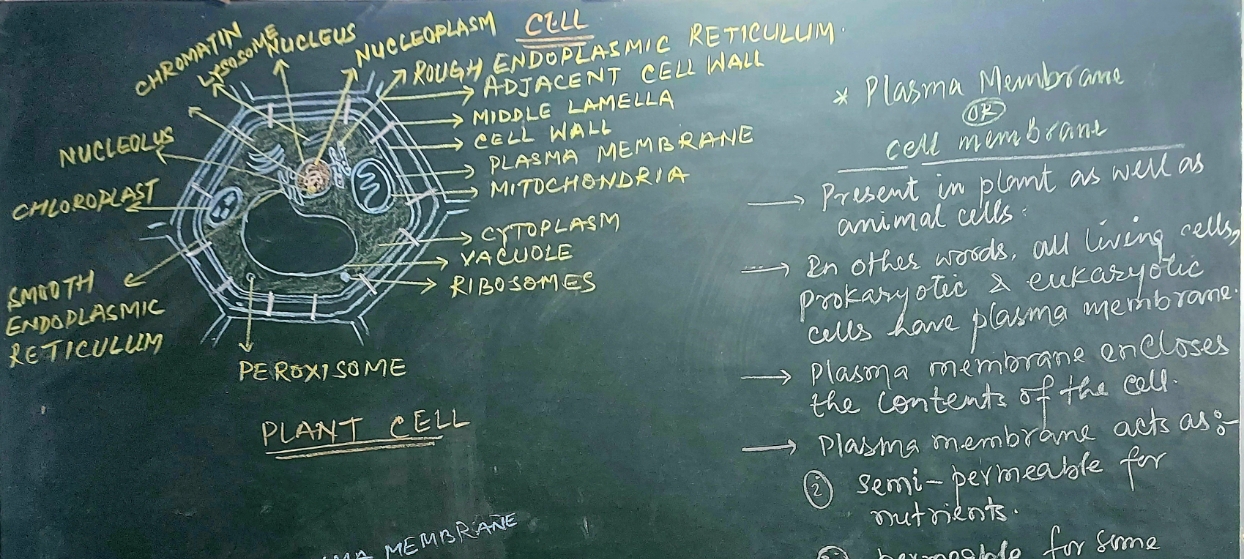 CELL
CHROMATIN
LYSOSOME
NUCLEUS
NUCLEOPLASM
ROUGH ENDOPLASMIC RETICULUM
ADJACENT CELL WALL
MIDDLE LAMELLA
CELL WALL
PLASMA MEMBRANE
MITOCHONDRIA
CYTOPLASM
VACUOLE
RIBOSOMES
NUCLEOLUS
CHLOROPLAST
SMOOTH
ENDOPLASMIC
RETICULUM
PEROXISOME
PLANT CELL
MEMBRANE
* Plasma Membrane
OR
cell membrane
→ Present in plant as well as
animal cells.
→ In other words, all living cells,
prokaryotic & eukaryotic
cells have plasma membrane.
→ Plasma membrane encloses
the contents of the cell.
→ Plasma membrane acts as:-
semi-permeable for
nutrients.
permeable for some